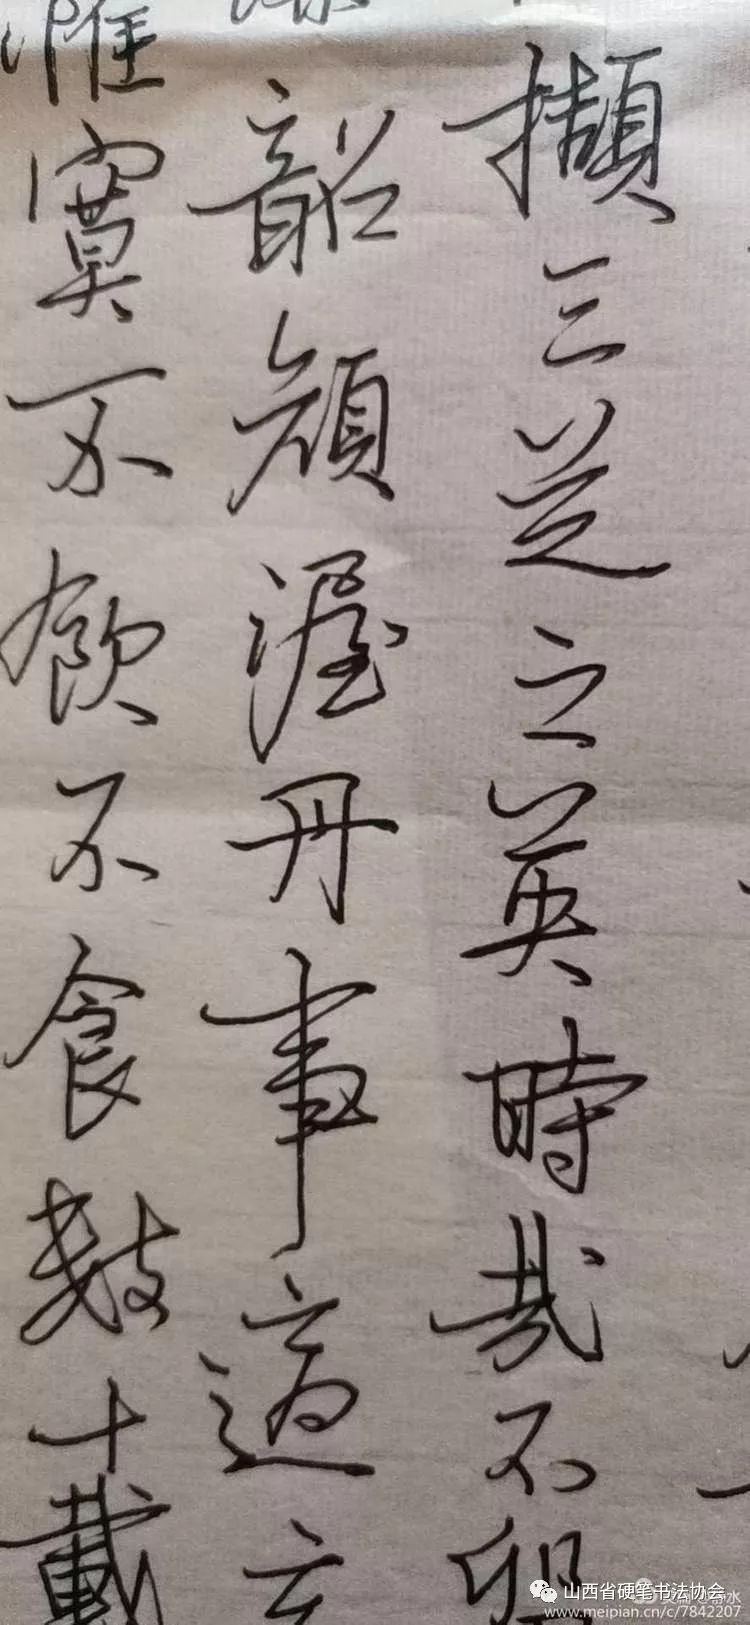 擷三芝之英時哉不
韶顏渥丹事適言
寞不飲不食数十載
山西省硬笔书法协会
www.meipian.cn/c/7842207